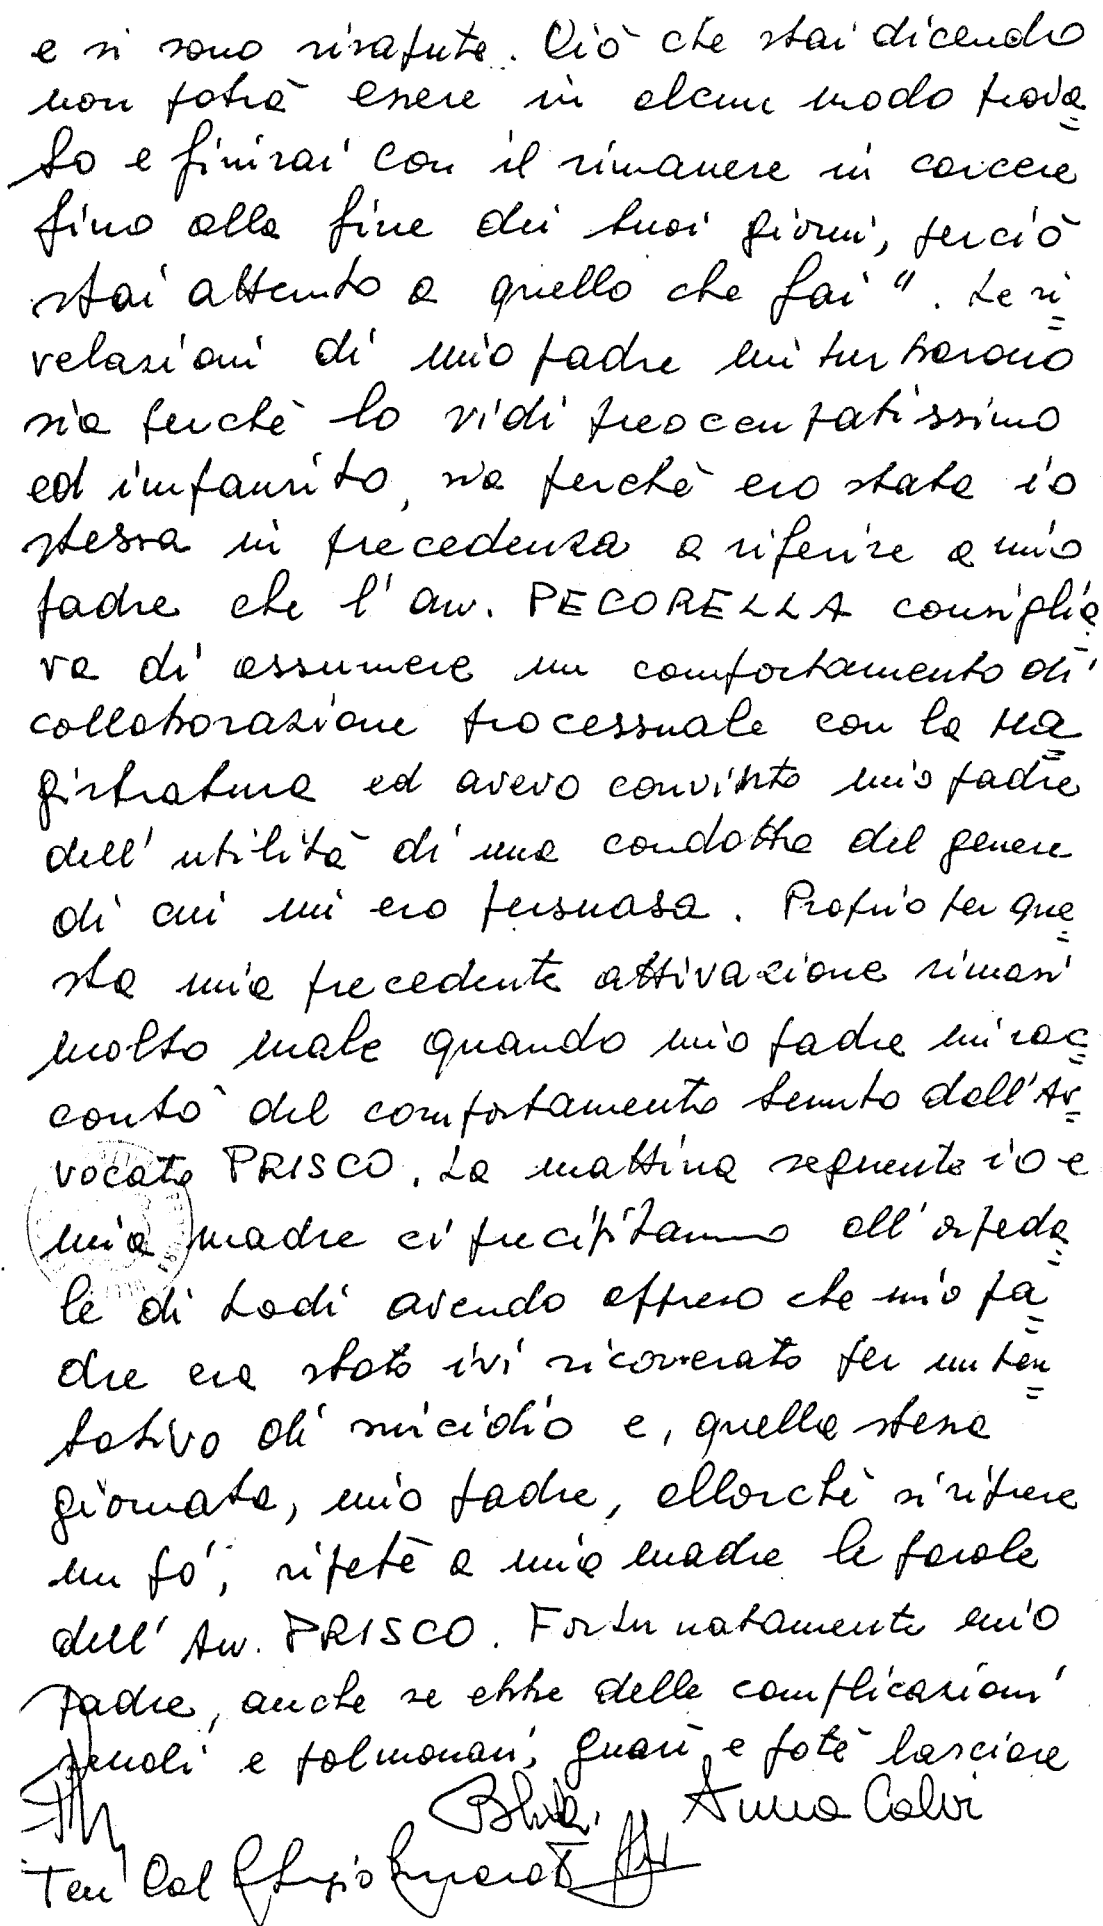 e si sono risapute. Ciò che stai dicendo
non potrà essere in alcun modo prova=
to e finirai con il rimanere in carcere
fino alla fine dei tuoi giorni, perciò
stai attento a quello che fai". Le ri=
velazioni di mio padre mi turbarono
sia perchè lo vidi preoccupatissimo
ed impaurito, sia perchè ero stata io
stessa in precedenza a riferire a mio
padre che l'avv. PECORELLA consiglia=
va di assumere un comportamento di
collaborazione processuale con la Ma=
gistratura ed avevo convinto mio padre
dell'utilità di una condotta del genere
di cui mi ero persuasa. Proprio per que=
sta mia precedente attivazione rimasi
molto male quando mio padre mi rac=
contò del comportamento tenuto dall'Av=
vocato PRISCO. La mattina seguente io e
mia madre ci precipitammo all'ospeda=
le di Lodi avendo appreso che mio pa=
dre era stato ivi ricoverato per un ten=
tativo di suicidio e, quella stessa
giornata, mio padre, allorchè si riprese
un po', ripetè a mia madre le parole
dell'Avv. PRISCO. Fortunatamente mio
padre, anche se ebbe delle complicazioni
renali e polmonari, guarì e potè lasciare
Anna Calvi
Ten Col